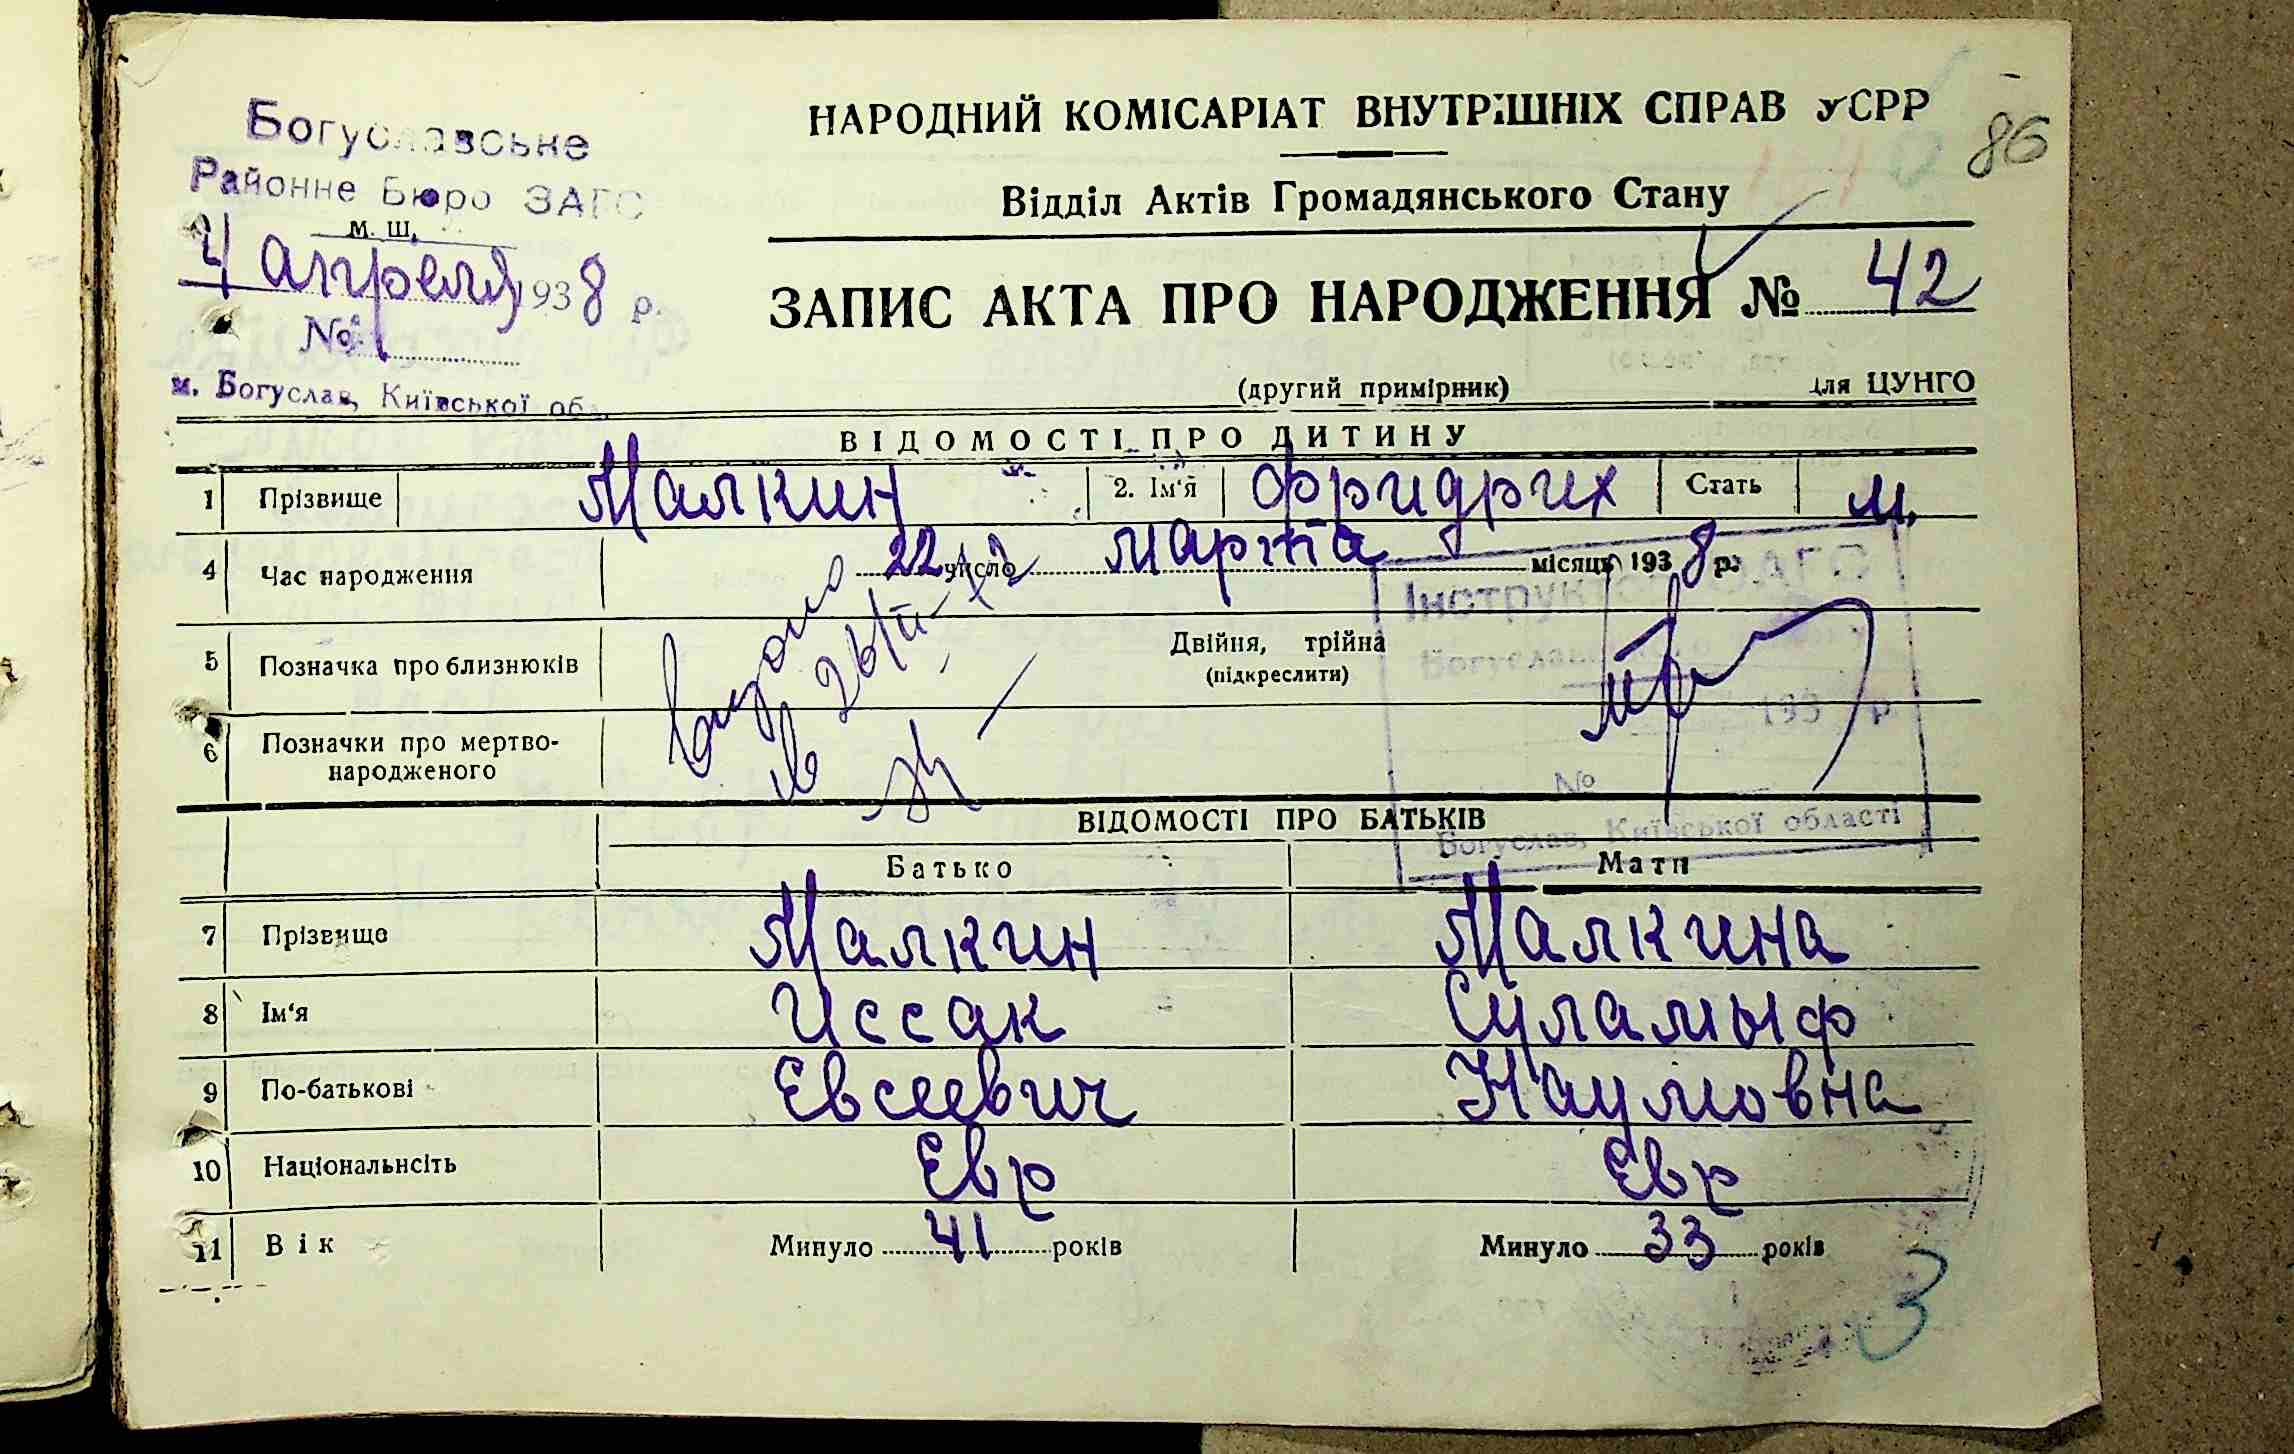 86
НАРОДНИЙ КОМІСАРІАТ ВНУТРІШНІХ СПРАВ УСРР
Відділ Актів Громадянського Стану
Богуславське
Районне Бюро ЗАГС
м. ш.
4 апреля 1938 р.
№
м. Богуслав, Київської обл.
ЗАПИС АКТА ПРО НАРОДЖЕННЯ № 42
(другий примірник) для ЦУНГО
ВІДОМОСТІ ПРО ДИТИНУ
1 Прізвище Малкин 2. Ім'я Фридрих Стать м.
4 Час народження 22 число марта місяця 1938 р.
5 Позначка про близнюків Двійня, трійна
(підкреслити)
6 Позначки про мертво-
народженого
Інструктор ЗАГС
193 р.
№
Богуслав, Київської області
ВІДОМОСТІ ПРО БАТЬКІВ
Батько Мати
7 Прізвище Малкин Малкина
8 Ім'я Иссак Суламыф
9 По-батькові Евсеевич Наумовна
10 Національнсіть Евр Евр
11 Вік Минуло 41 років Минуло 33 років
3